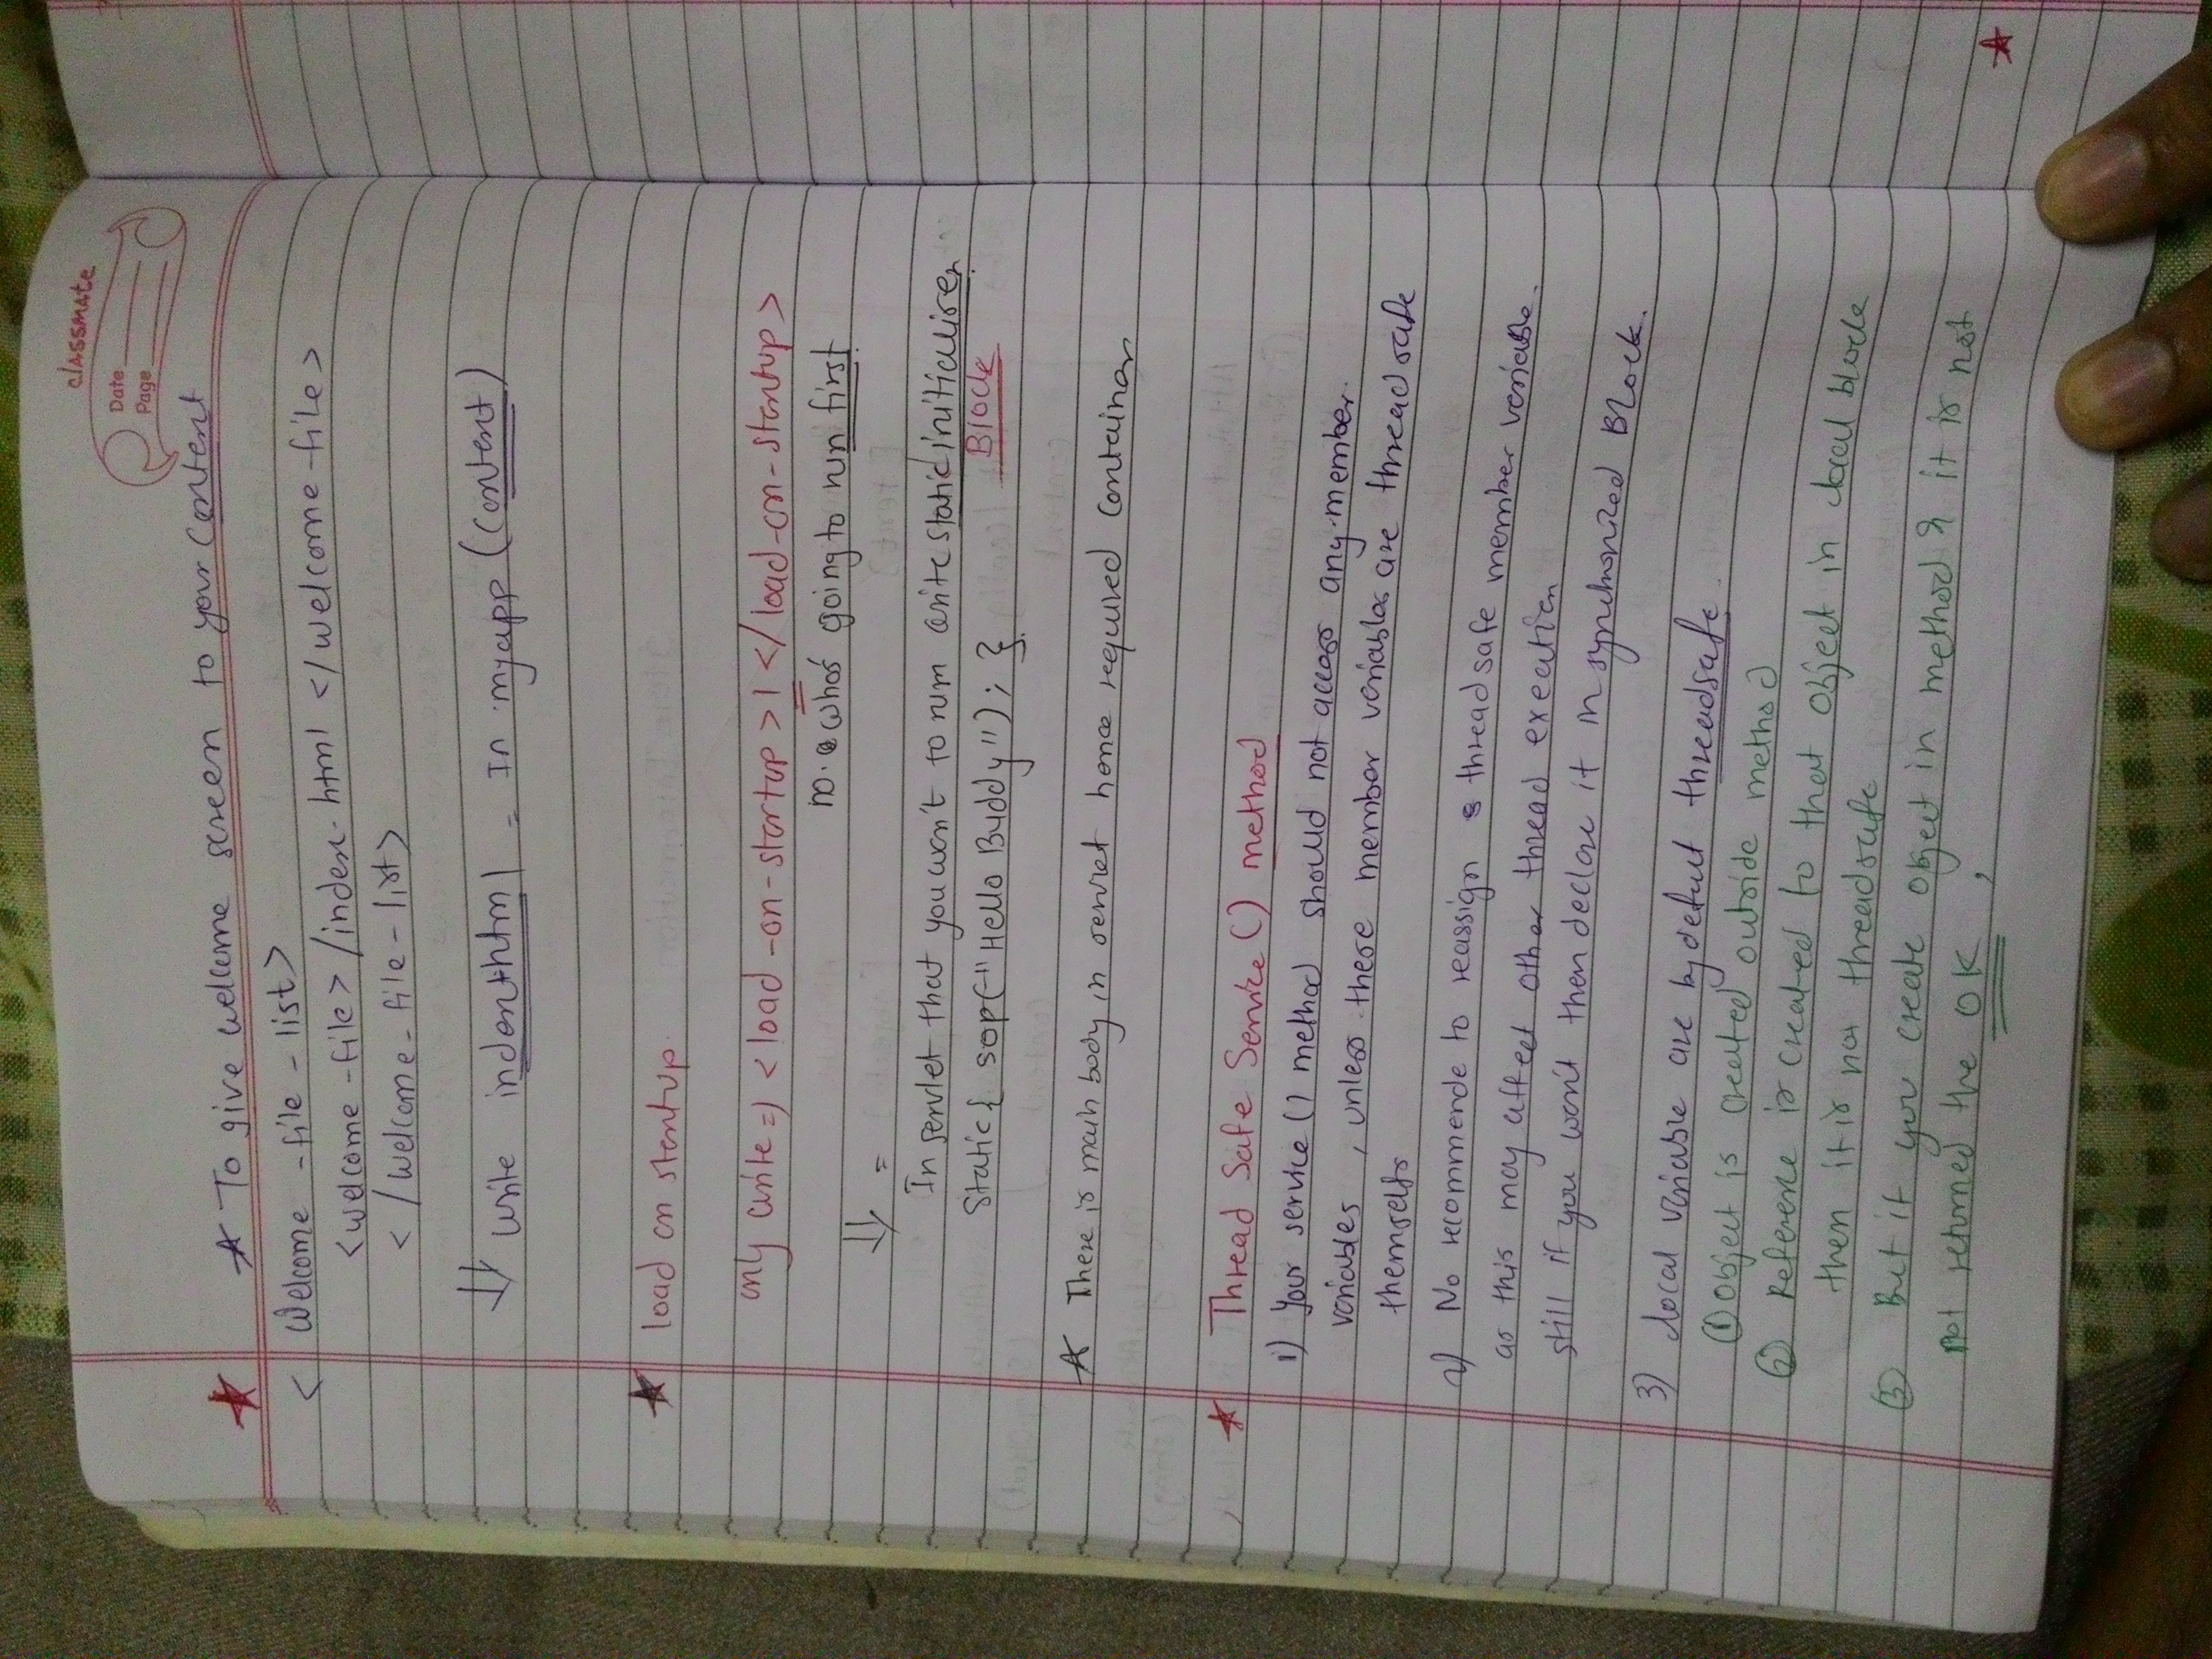 classmate
Date
Page
★ ☆ To give welcome screen to your Content
< Welcome -file - list>
<welcome -file> /index.html </welcome-file>
< /welcome - file - list>
⇓ write index.html = In myapp (Content)
★ load on startup.
only write => <load -on-startup >1 </ load-on-startup >
no. who's going to run first
⇓ =
In servlet that you won't to run write static initialiser
Static { sop("Hello Buddy"); } Block
☆ There is main body in servlet hence required Container
★ Thread Safe Service () method
1) Your service () method should not access any member
variables , unless these member variables are thread safe
themselfs
2) No recommende to reassign thread safe member variable.
as this may affect other thread exection
still if you won't then declare it in synchronized Block.
3) local variable are by defult threadsafe.
① Object is created outside method
② Reference is created to that object in local block
then it is not threadsafe
③ But if you create object in method & it is not
not returned the OK ,
★